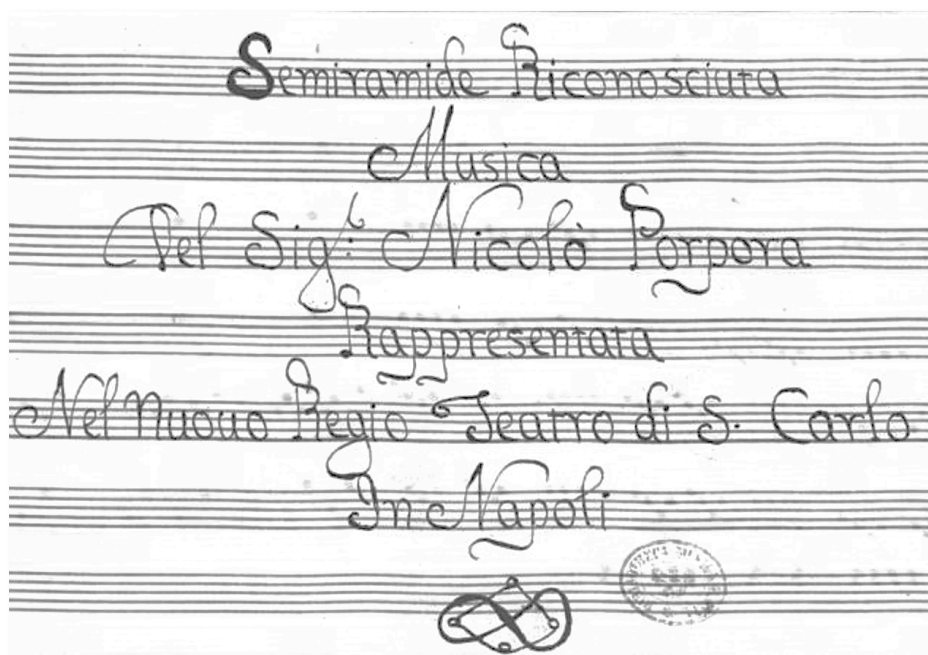 Semiramide Riconosciuta
Musica
Del Sig.r Nicolò Porpora
Rappresentata
Nel nuouo Regio Teatro di S. Carlo
In Napoli